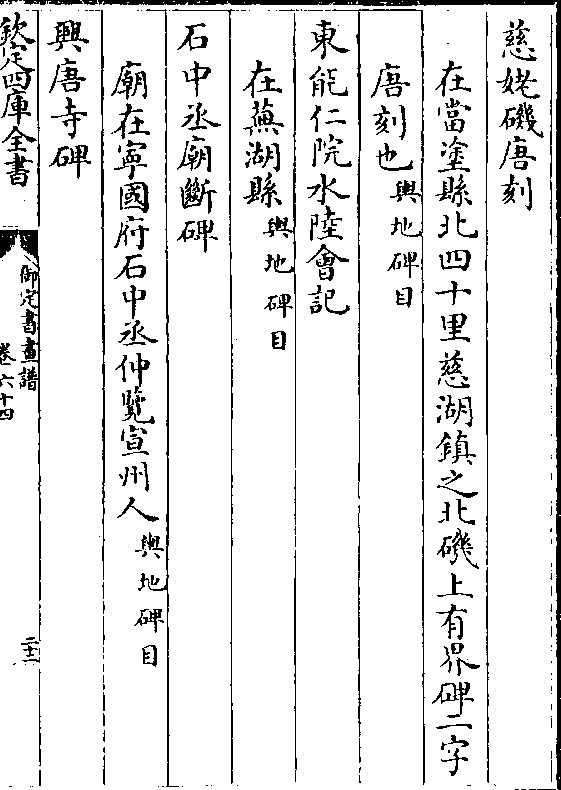 慈姥磯唐刻
在當塗縣北四十里慈湖鎮之北磯上有界碑二字
唐刻也輿地碑目
東能仁院水陸會記
在蕪湖縣輿地碑目
石中丞廟斷碑
廟在寧國府石中丞仲覽宣州人輿地碑目
興唐寺碑
欽定四庫全書
御定書畫譜
卷六十四
二十二